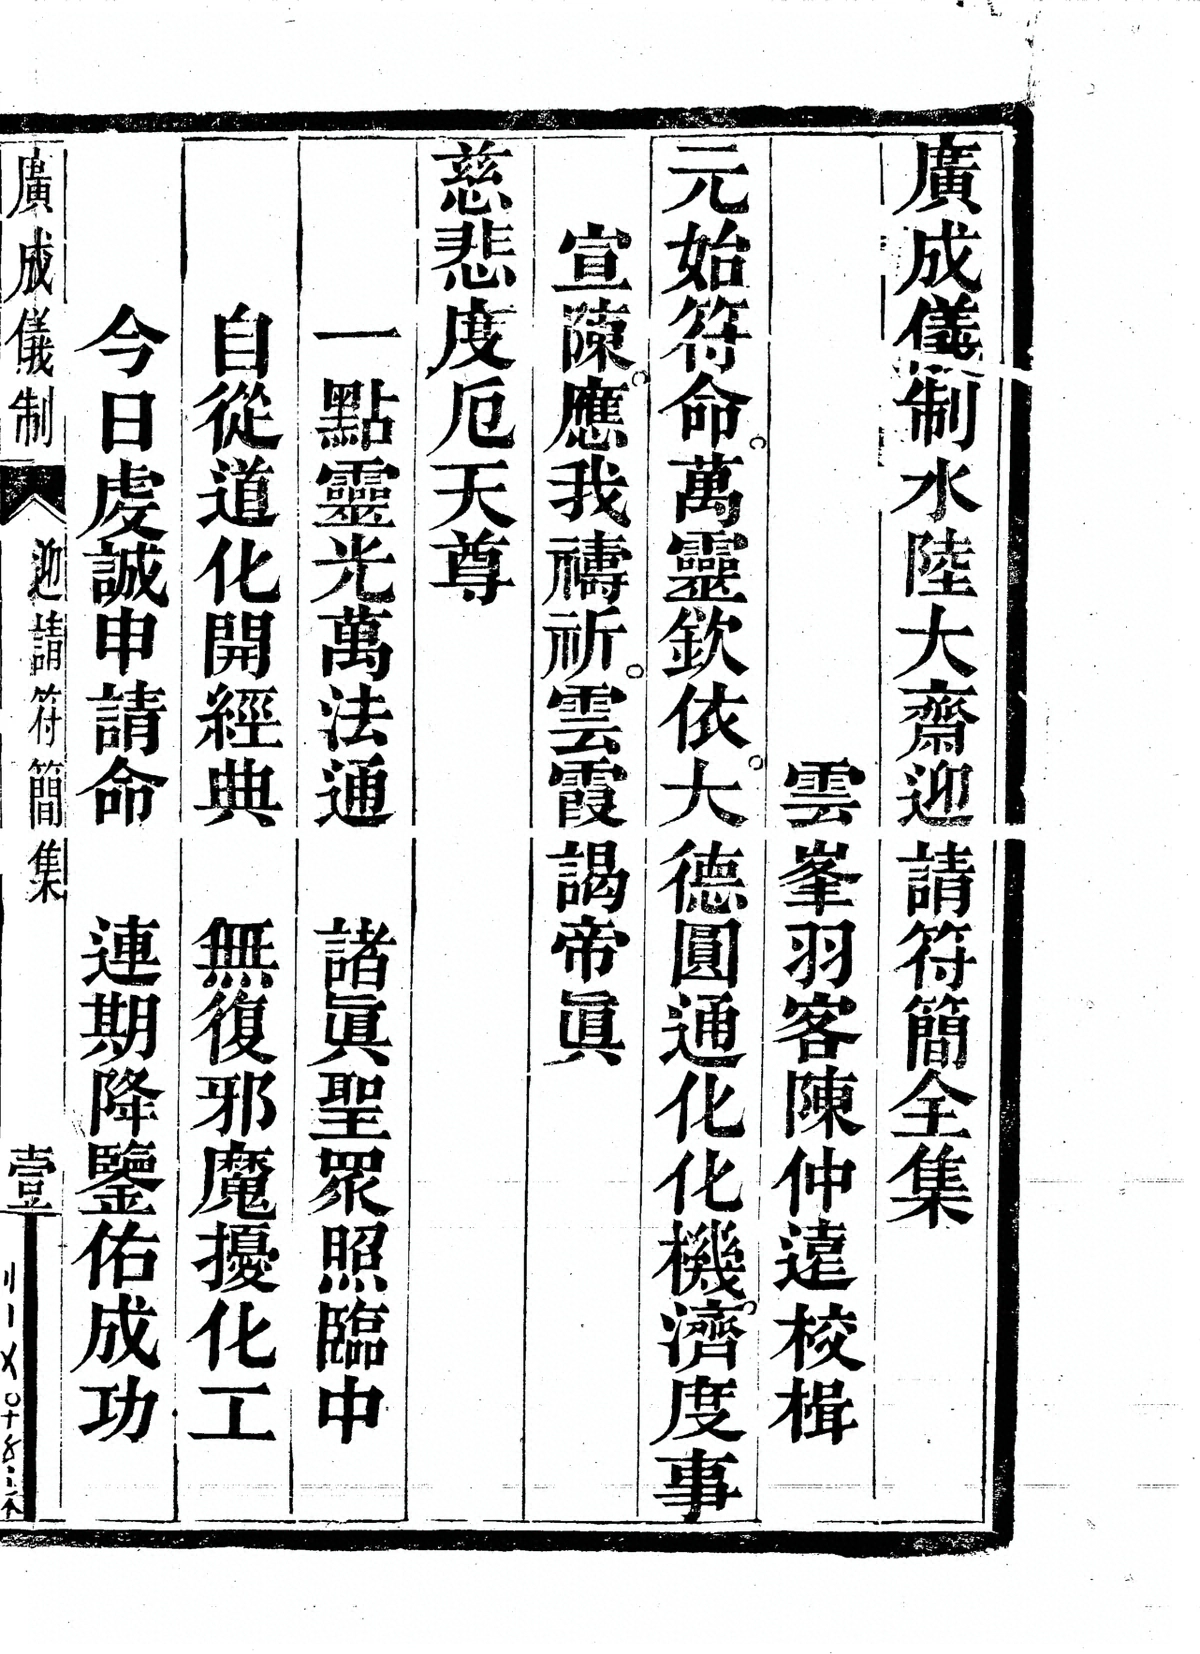 廣成儀制水陸大齋迎請符簡全集
雲峯羽客陳仲遠校楫
元始符命。萬靈欽依。大德圓通化化機。濟度事
宣陳。應我禱祈。雲霞謁帝眞
慈悲度厄天尊
一點靈光萬法通　諸眞聖眾照臨中
自從道化開經典　無復邪魔擾化工
今日虔誠申請命　連期降鑒佑成功
廣成儀制　迎請符簡集　壹